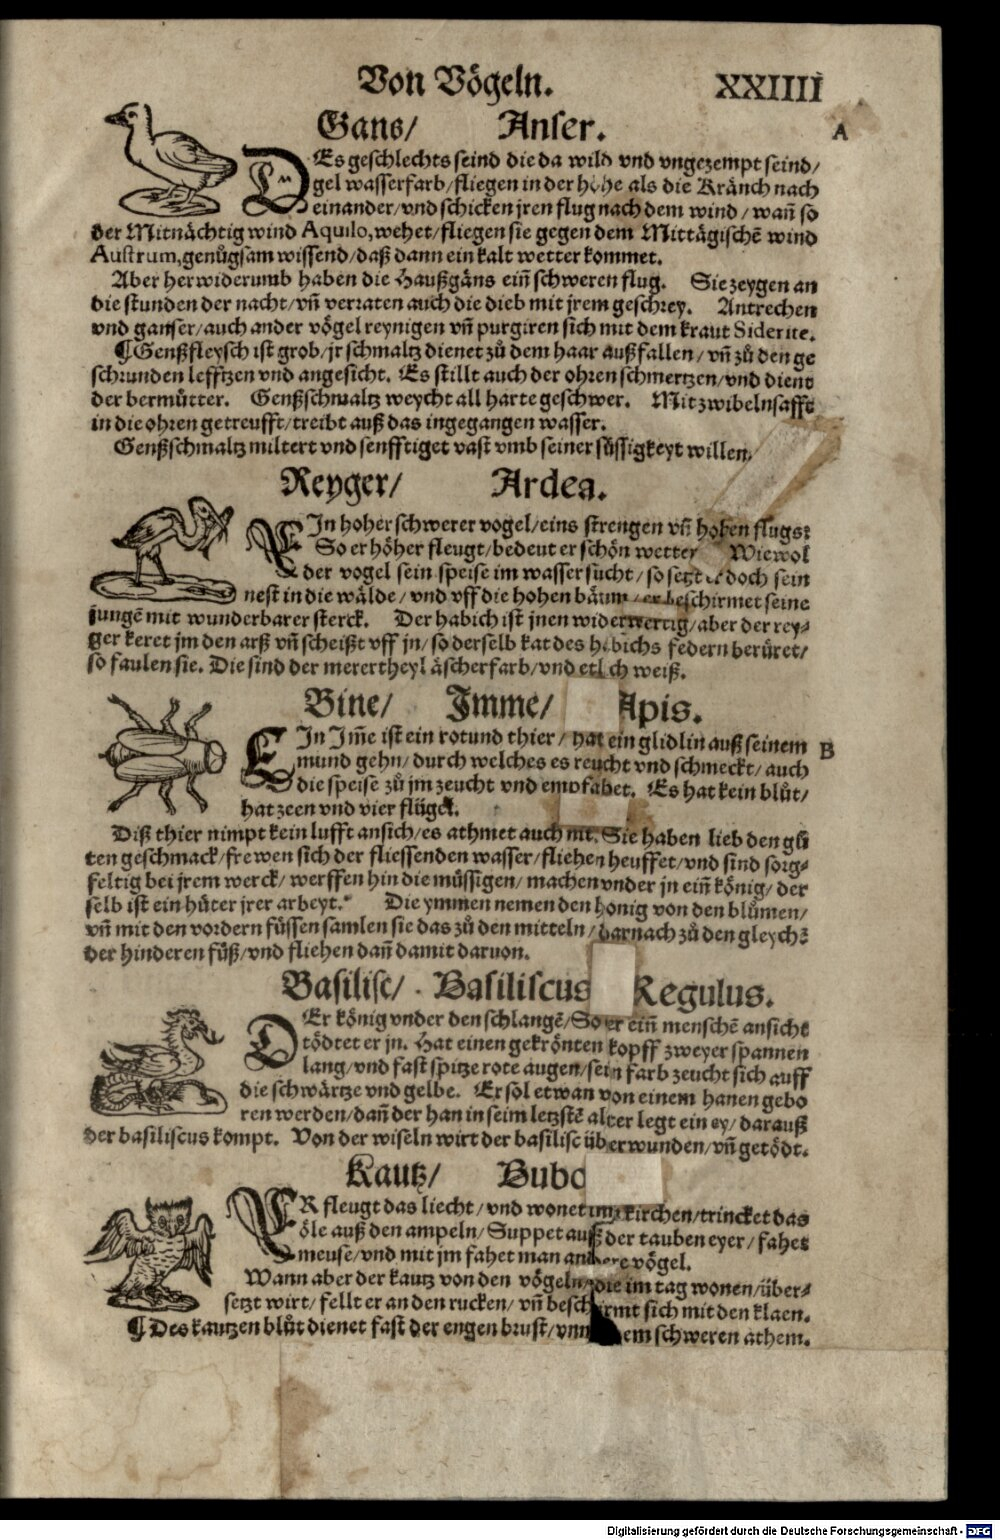 Von Vögeln. XXIIII
Gans/ Anser. A
DEs geschlechts seind die da wild vnd vngezempt seind/
gel wasserfarb/fliegen in der höhe als die Kränch nach
einander/vnd schicken jren flug nach dem wind/wañ so
der Mitnächtig wind Aquilo,wehet/fliegen sie gegen dem Mittägischē wind
Austrum,genůgsam wissend/daß dann ein kalt wetter kommet.
Aber herwiderumb haben die Haußgäns eiñ schweren flug. Sie zeygen an
die stunden der nacht/vñ verraten auch die dieb mit jrem geschrey. Antrechen
vnd ganser/auch ander vögel reynigen vñ purgiren sich mit dem kraut Siderite.
¶Genßfleysch ist grob/jr schmaltz dienet zů dem haar außfallen/vñ zů den ge
schrunden lefftzen vnd angesicht. Es stillt auch der ohren schmertzen/vnd dient
der bermůtter. Genßschmaltz weycht all harte geschwer. Mit zwibelnsafft
in die ohren getreufft/treibt auß das ingegangen wasser.
Genßschmaltz miltert vnd senfftiget vast vmb seiner süssigkeyt willen.
Reyger/ Ardea.
EIn hoher schwerer vogel/eins strengen vñ hohen flugs:
So er höher fleugt/bedeut er schön wetter Wiewol
der vogel sein speise im wasser sucht/so setzt er doch sein
nest in die wälde/vnd vff die hohen bäum/er beschirmet seine
jungē mit wunderbarer sterck. Der habich ist jnen widerwertig/aber der rey⸗
ger keret jm den arß vñ scheißt vff jn/so derselb kat des habichs federn berüret/
so faulen sie. Die sind der merertheyl äscherfarb/vnd etlich weiß.
Bine/ Imme/ Apis.
EIn Im̃e ist ein rotund thier/hat ein glidlin auß seinem B
mund gehn/durch welches es reucht vnd schmeckt/auch
die speise zů jm zeucht vnd empfahet. Es hat kein blůt/
hat zeen vnd vier flügel.
Diß thier nimpt kein lufft an sich/es athmet auch nit. Sie haben lieb den gů
ten geschmack/frewen sich der fliessenden wasser/fliehen heuffet/vnd sind sorg⸗
feltig bei jrem werck/werffen hin die müssigen/machen vnder jn eiñ könig/der
selb ist ein hüter jrer arbeyt. Die ymmen nemen den honig von den blůmen/
vñ mit den vordern füssen samlen sie das zů den mitteln/darnach zů den gleychē
der hinderen füß/vnd fliehen dañ damit daruon.
Basilisc/ Basiliscus Regulus.
DEr könig vnder den schlangē/So er eiñ menschē ansicht
tödtet er jn. Hat einen gekrönten kopff zweyer spannen
lang/vnd fast spitze rote augen/sein farb zeucht sich auff
die schwärtze vnd gelbe. Er sol etwan von einem hanen gebo
ren werden/dañ der han in seim letzstē alter legt ein ey/darauß
der basiliscus kompt. Von der wiseln wirt der basilisc überwunden/vñ getödt.
Kautz/ Bubo
ER fleugt das liecht/vnd wonet inn kirchen/trincket das
öle auß den ampeln/Suppet auß der tauben eyer/fahet
meuse/vnd mit jm fahet man andere vögel.
Wann aber der kautz von den vögeln die im tag wonen/über⸗
setzt wirt/fellt er an den rucken/vñ beschirmt sich mit den klaen.
¶Des kautzen blůt dienet fast der engen brust/vnn em schweren athem.
Digitalisierung gefördert durch die Deutsche Forschungsgemeinschaft - DFG